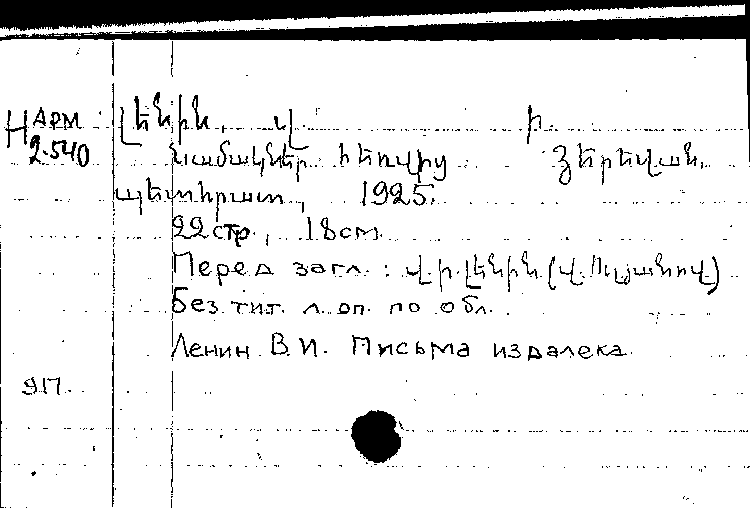 Н АРМ 2-540
Լենին, Վ. Ի.
Նամակներ հեռվից Յերեվան,
պետհրատ, 1925.
22 стр., 18 см
Перед загл.: Վ. Ի. Լենին (Վ. Ուլյանով)
Без тит. л. оп. по обл.
Ленин В.И. Письма издалека